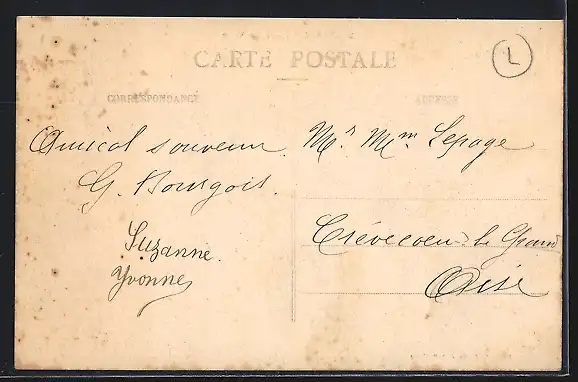 CARTE POSTALE
CORRESPONDANCE
ADRESSE
L
Amical souvenir
G. Bourgois.
Suzanne.
Yvonne
Mr Mme Lepage
Crèvecoeur-le Grand
Oise